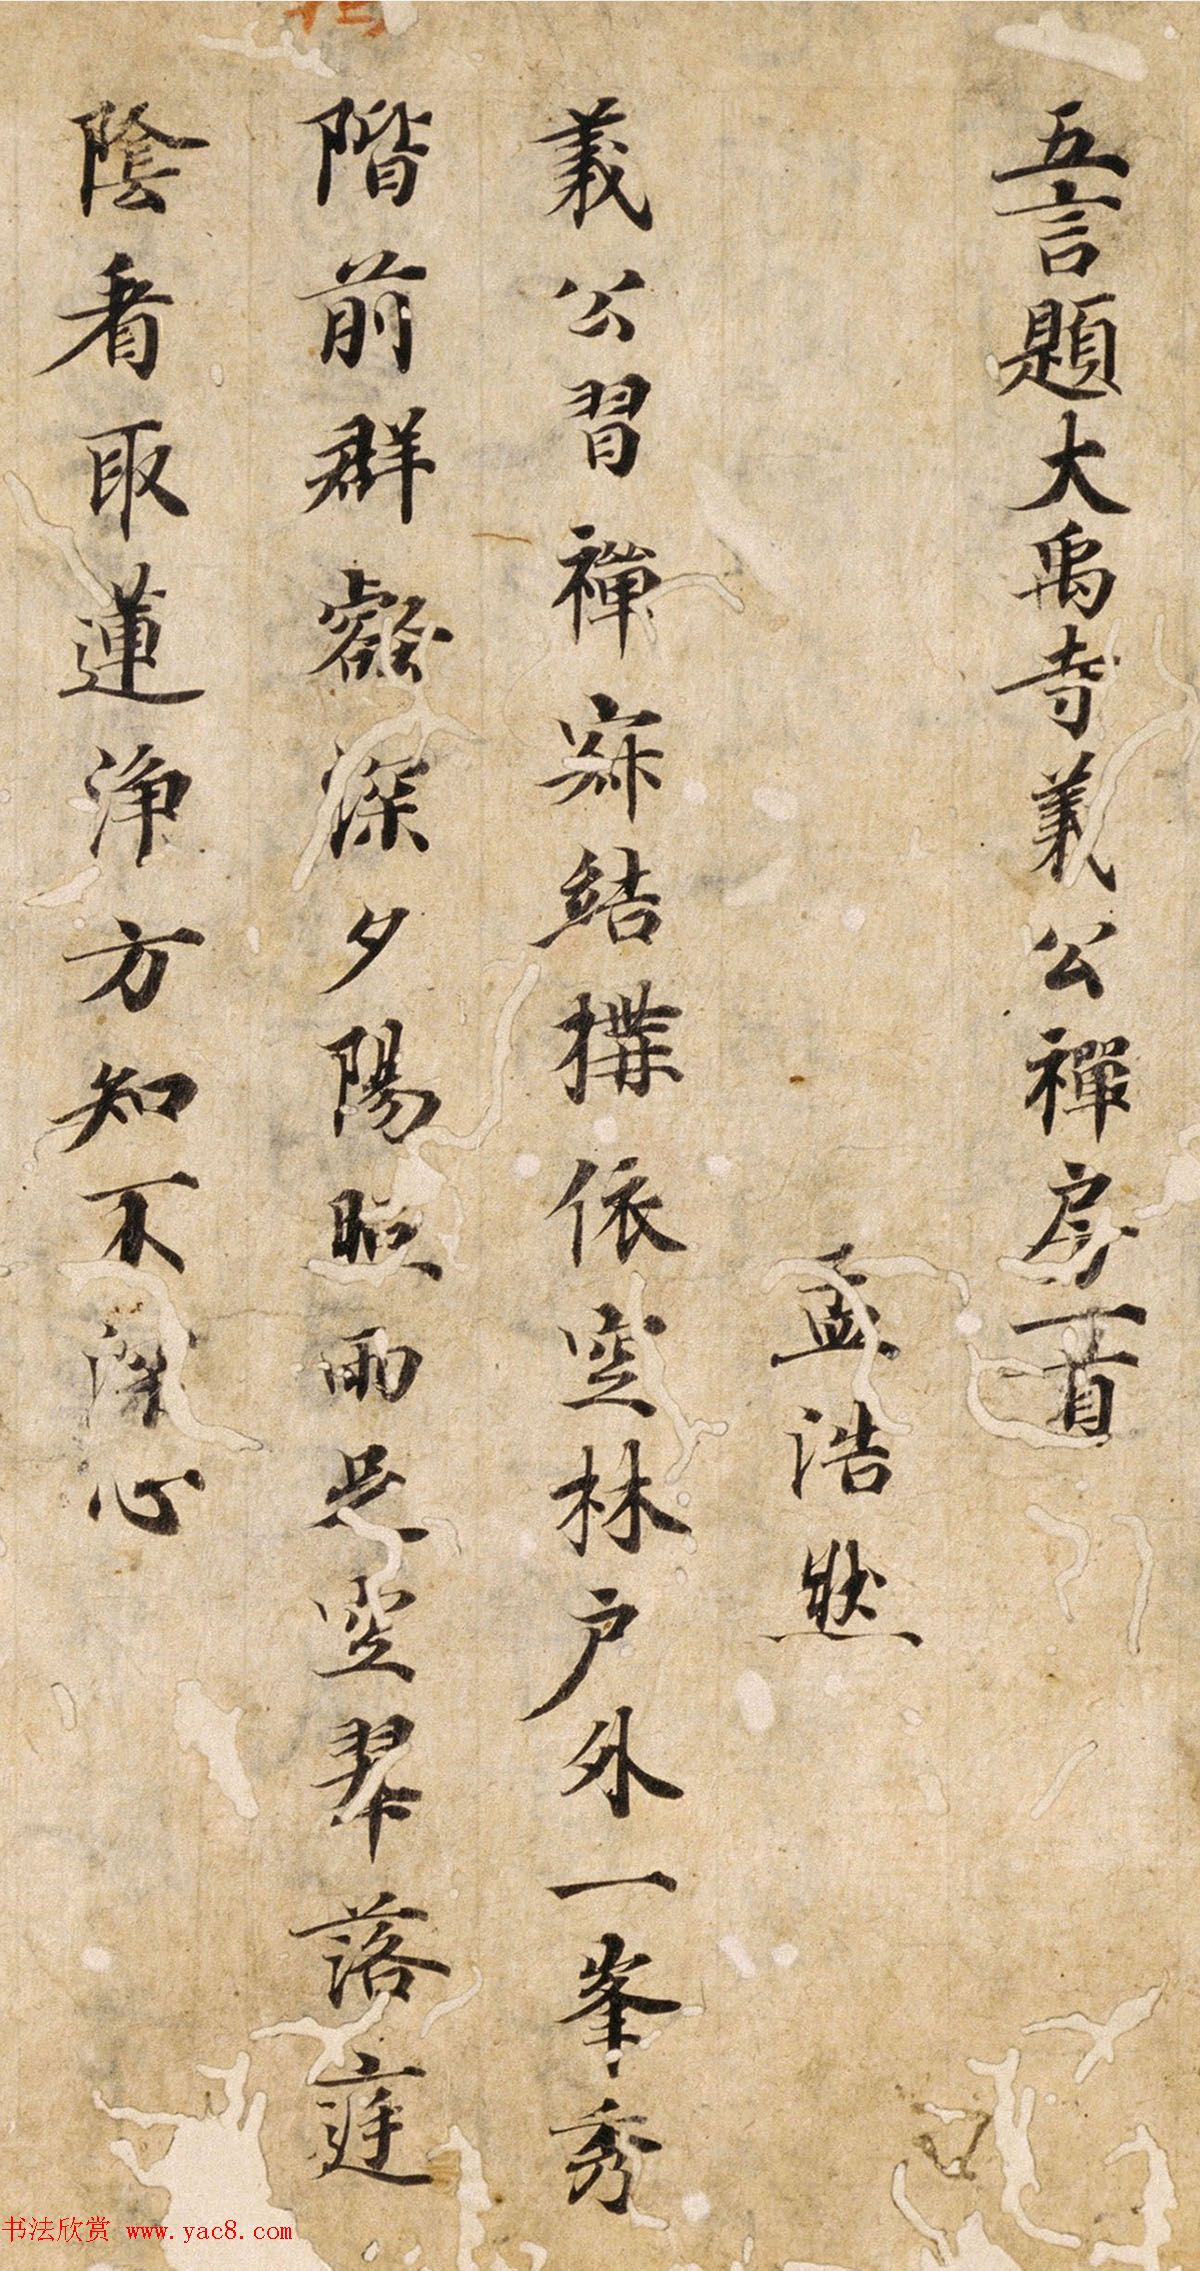 五言題大禹寺義公禪房一首
孟浩然
義公習禪寂結構依空林户外一峯秀
階前群壑深夕陽照雨足空翠落庭
陰看取蓮净方知不深心
书法欣赏 www.yac8.com